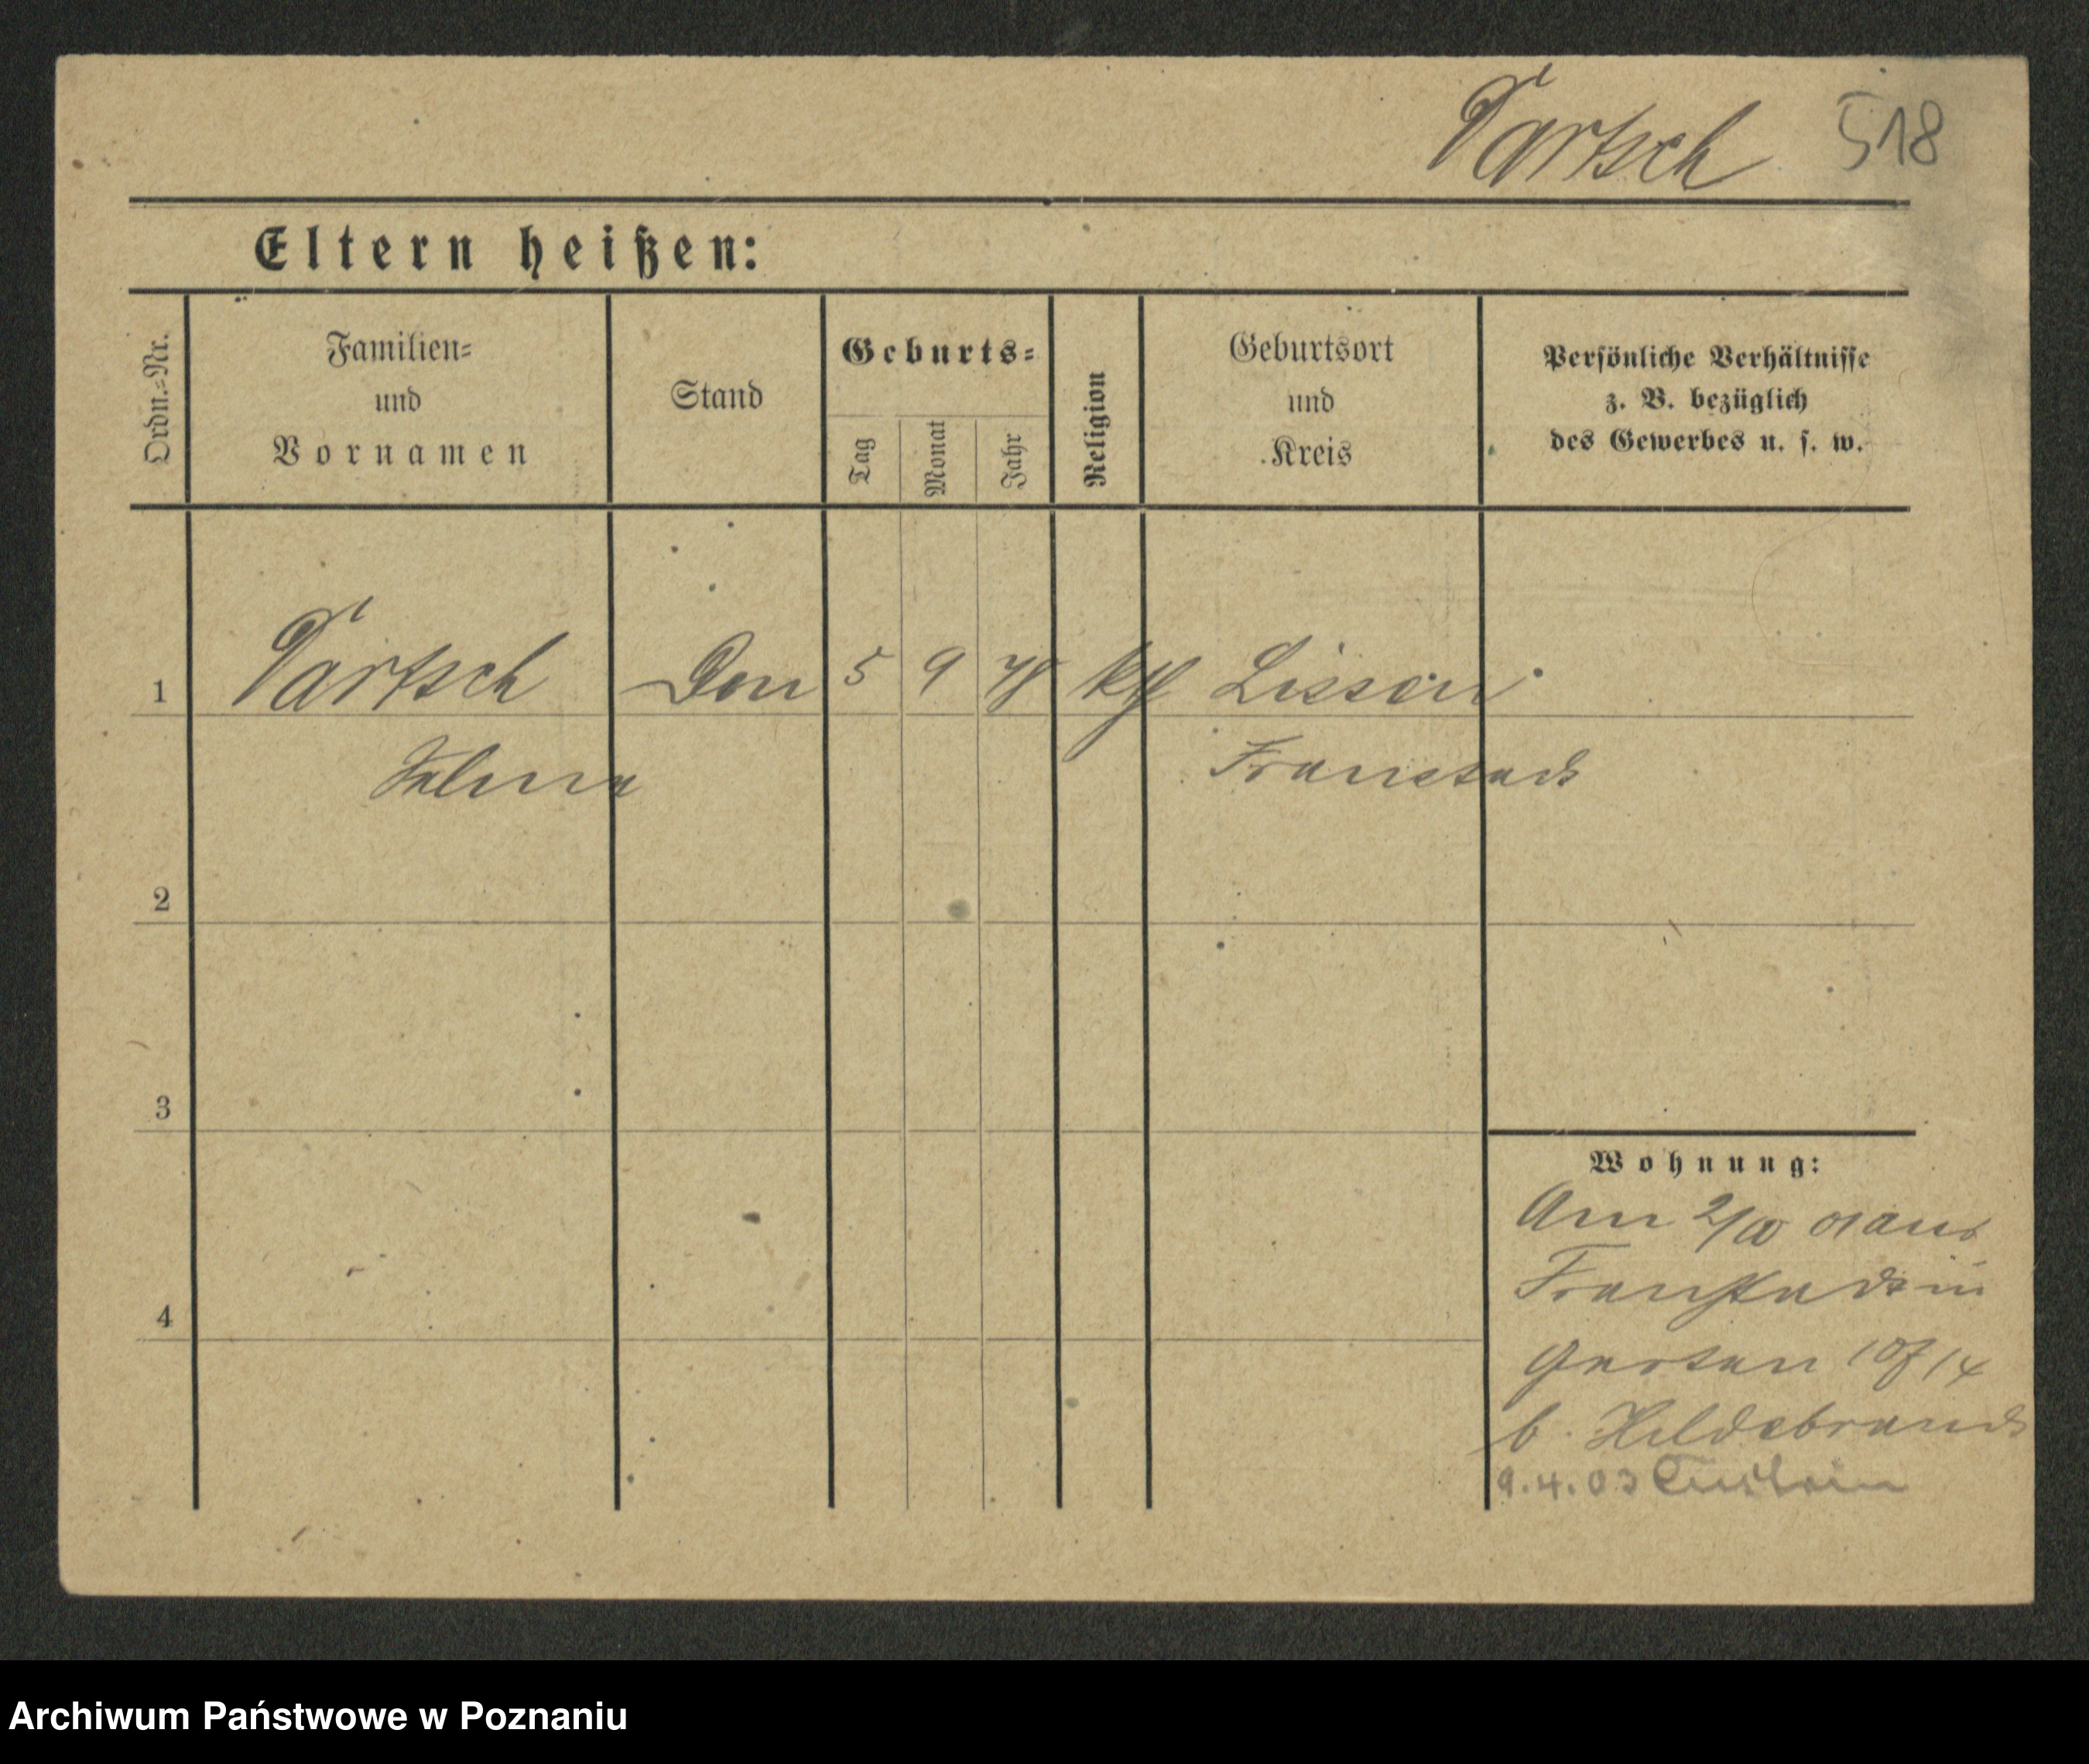 Tartsch 518
Eltern heißen:
Ordn.-Nr.
Familien-
und
Vornamen
Stand
Geburts-
Tag
Monat
Jahr
Religion
Geburtsort
und
Kreis
Persönliche Verhältnisse
z. B. bezüglich
des Gewerbes u. s. w.
1 Tartsch 5 9 78 kth Lissen
Selma Fraustadt
2
3
4
Wohnung:
Am 2/IV 01 aus
Fraustadt in
Garten 14
b. Hildebrand
9.4.03
Archiwum Państwowe w Poznaniu